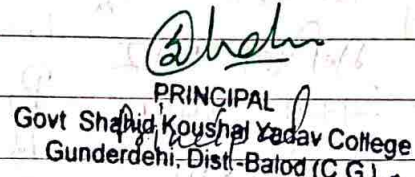 PRINCIPAL
Govt Shahid Koushal Yadav College
Gunderdehi, Distt-Balod (C.G.)